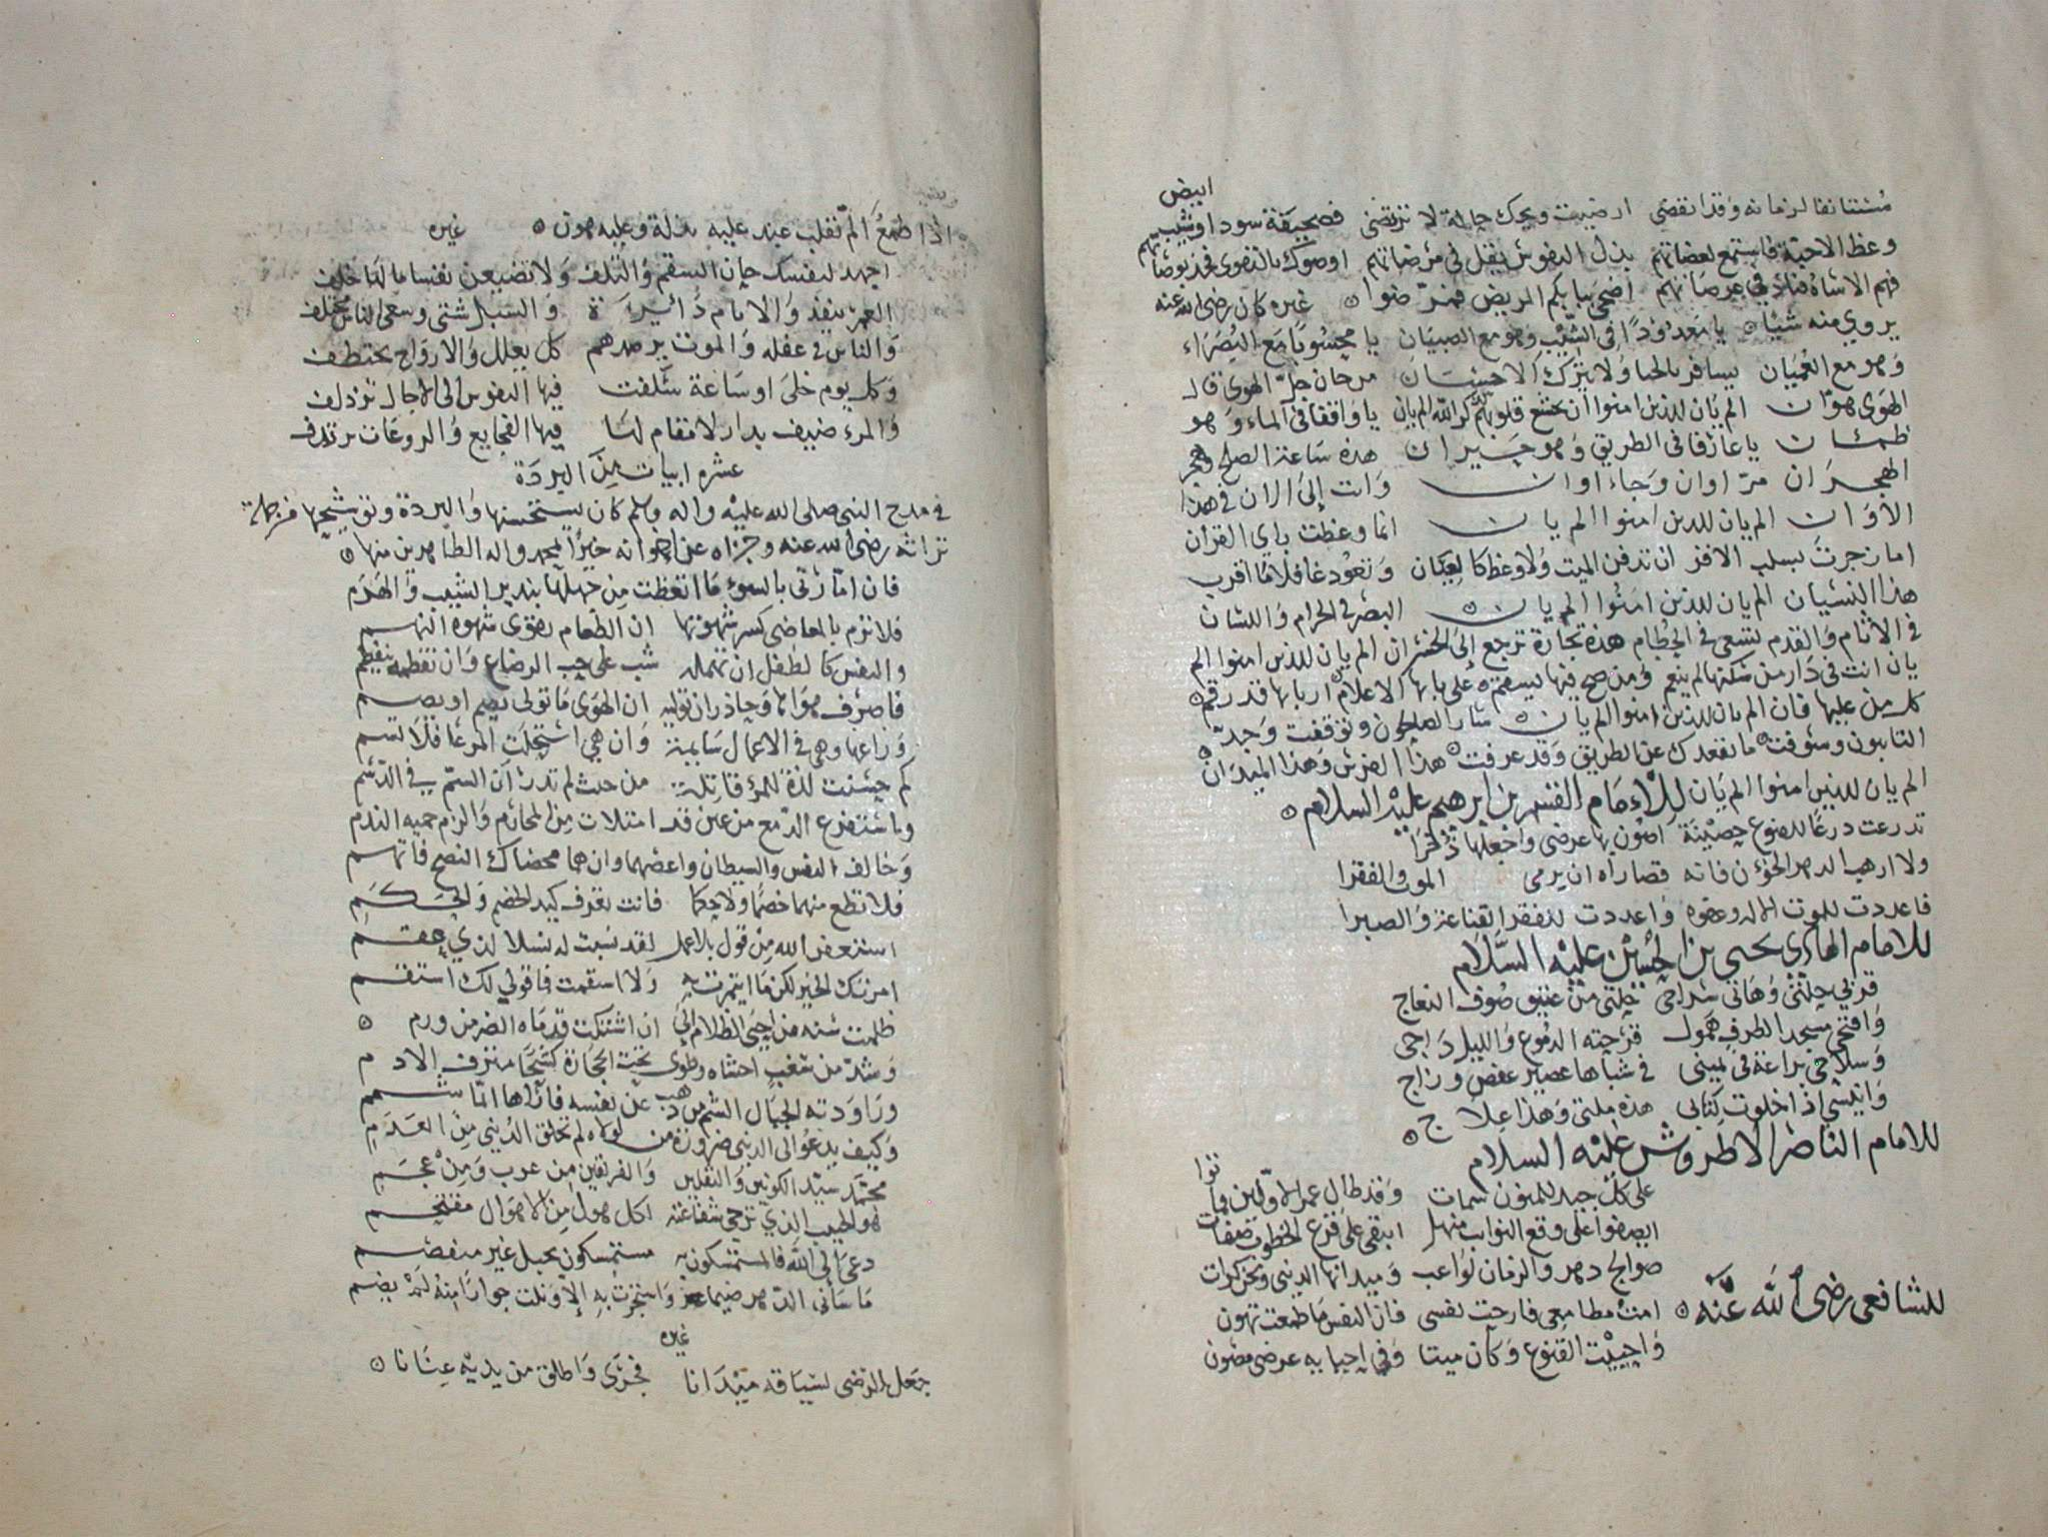 ابيض
مستانفا لزمانه وقد انقضى ارضيت ويحك حالة لا ترتضى فصحيفة سودا وشيب
وعظ الاحبة فاستمع لعضاتهم بذل النفوس يقل في مرضاتهم اوصوك بالتقوى فخذ بوصاتهم
فهم الاساة فناد في عرصاتهم اضحى ببابكم المريض فمرضوا غيره كان رضي الله عنه
يروي منه شيا يا معدودا في الشيب وهو مع الصبيان يا محسوبا مع البصراء
وهو مع العميان يسافر بالخطا ولا يترك الاحسان مرحان حل الهوى قال
الهوى هوان الم يان للذين امنوا ان تخشع قلوبهم لذكر الله الم يان يا واقفا في الماء وهو
ظمئان يا عارفا في الطريق وهو حيران هذه ساعة الصلح وهجر
الهجران مر اوان وجاء اوان وانت الى الان في هذا
الاوان الم يان للذين امنوا الم يان انما وعظت باي القران
اما زجرت بسلب الاقران تدفن الميت ولا وعظ كالعيان وتعود غافلا ما اقرب
هذا النسيان الم يان للذين امنوا الم يان البصر في الحرام واللسان
في الاثام والقدم يسعى في الحطام هذه تجارة ترجع الى الخسران الم يان للذين امنوا الم
يان انت في دار من سكنها لم ينعم ومن صح فيها ليسقم على بابها الاعلام اربابها قد رقم
كل من عليها فان الم يان للذين امنوا الم يان سار الصالحون وتوقفت وجد
التايبون وسوفت ما يقعدك عن الطريق وقد عرفت هذا الفرس وهذا الميدان
الم يان للذين امنوا الم يان للامام القسم بن ابرهيم عليه السلام
تدرعت درعا للقنوع حصينة اصون بها عرضي واجعلها ذخرا
ولا ارهب الدهر الخؤن فانه قصاراه ان يرمى الموت والفقرا
فاعددت للموت الاله وعفوه واعددت للفقر القناعة والصبرا
للامام الهادي يحيى بن الحسين عليه السلام
وافتحي مسجد الطرف همول قرحته الدموع والليل داجي
وسلاحي يراعة في يميني في شباها عصير عفص وزاج
وانيسي اذا خلوت كتابي هذه ملتي وهذا علاج
للامام الناصر الاطروش عليه السلام
على كل جيد للمنون سمات وقد طال عمر الاولين وماتوا
صوالج دهر والزمان لواعب وميدانها الدنيى ونحن كرات
للشافعي رضي الله عنه امت مطامعي فارحت نفسي فان النفس ما طمعت تهون
واحييت القنوع وكان ميتا وفي احيايه عرضي مصون
اذا طمع الم بقلب عبد عليه بذلة وعليه هون غيره
اجهد لنفسك حان السقم والتلف ولا تضيعن نفسا ما لها خلف
العمر ينفد والايام دائرة والسبل شتى وسعى الناس مختلف
والناس في غفله والموت يرصدهم كل يعلل والارواح تختطف
وكل يوم خلى او ساعة سلفت فيها النفوس الى الاجال تزدلف
والمرء ضيف بدار لا مقام لها فيها الفجايع والروعات ترتدف
عشره ابيات من البردة
في مدح النبي صلى الله عليه واله وسلم كان يستحسنها والبردة وتوشيحها من جملة
تراثه رضي الله عنه وجزاه عن اخوانه خيرا لمحمد واله الطاهرين منها
فان امارتي بالسوء ما اتعظت من جهلها بنذير الشيب والهرم
فلا ترم بالمعاصي كسر شهوتها ان الطعام يقوى شهوة النهم
والنفس كالطفل ان تهمله شب على حب الرضاع وان تفطمه ينفطم
فاصرف هواها وحاذر ان توليه ان الهوى ما تولى يصم او يصم
وراعها وهي في الاعمال سايمة وان هي استحلت المرعا فلا تسم
كم حسنت لذة للمرء قاتلة من حيث لم تدر ان السم في الدسم
واستفرغ الدمع من عين قد امتلات من المحارم والزم حميه الندم
وخالف النفس والسيطان واعصهما وان هما محضاك النصح فاتهم
فلا تطع منهما خصما ولا حكما فانت تعرف كيد الخصم والحكم
استغفر الله من قول بلا عمل لقد نسبت له نسلا لذي عقم
امرتك الخير لكن ما ايتمرت به ولا استقمت فما قولي لك استقم
ظلمت سنه من احيى الظلام الى ان اشتكت قدماه الضر من ورم
وشد من سغب احشاه وطوى تحت الحجارة كشحا مترف الادم
وراودته الجبال الشم من ذهب عن نفسه فاراها ايما شمم
وكيف يدعو الى الدنيى ضرورة من لولاه لم تخلق الدنيى من العدم
محمد سيد الكونين والثقلين والفريقين من عرب ومن عجم
هو الحبيب الذي ترجى شفاعته لكل هول من الاهوال مقتحم
دعى الى الله فالمستمسكون به مستمسكون بحبل غير منفصم
ما سامني الدهر ضيما واستجرت به الا ونلت جوارا منه لم يضم
غيره
جعل الرضى لسباقه ميدانا فجرى واطلق من يديه عنانا